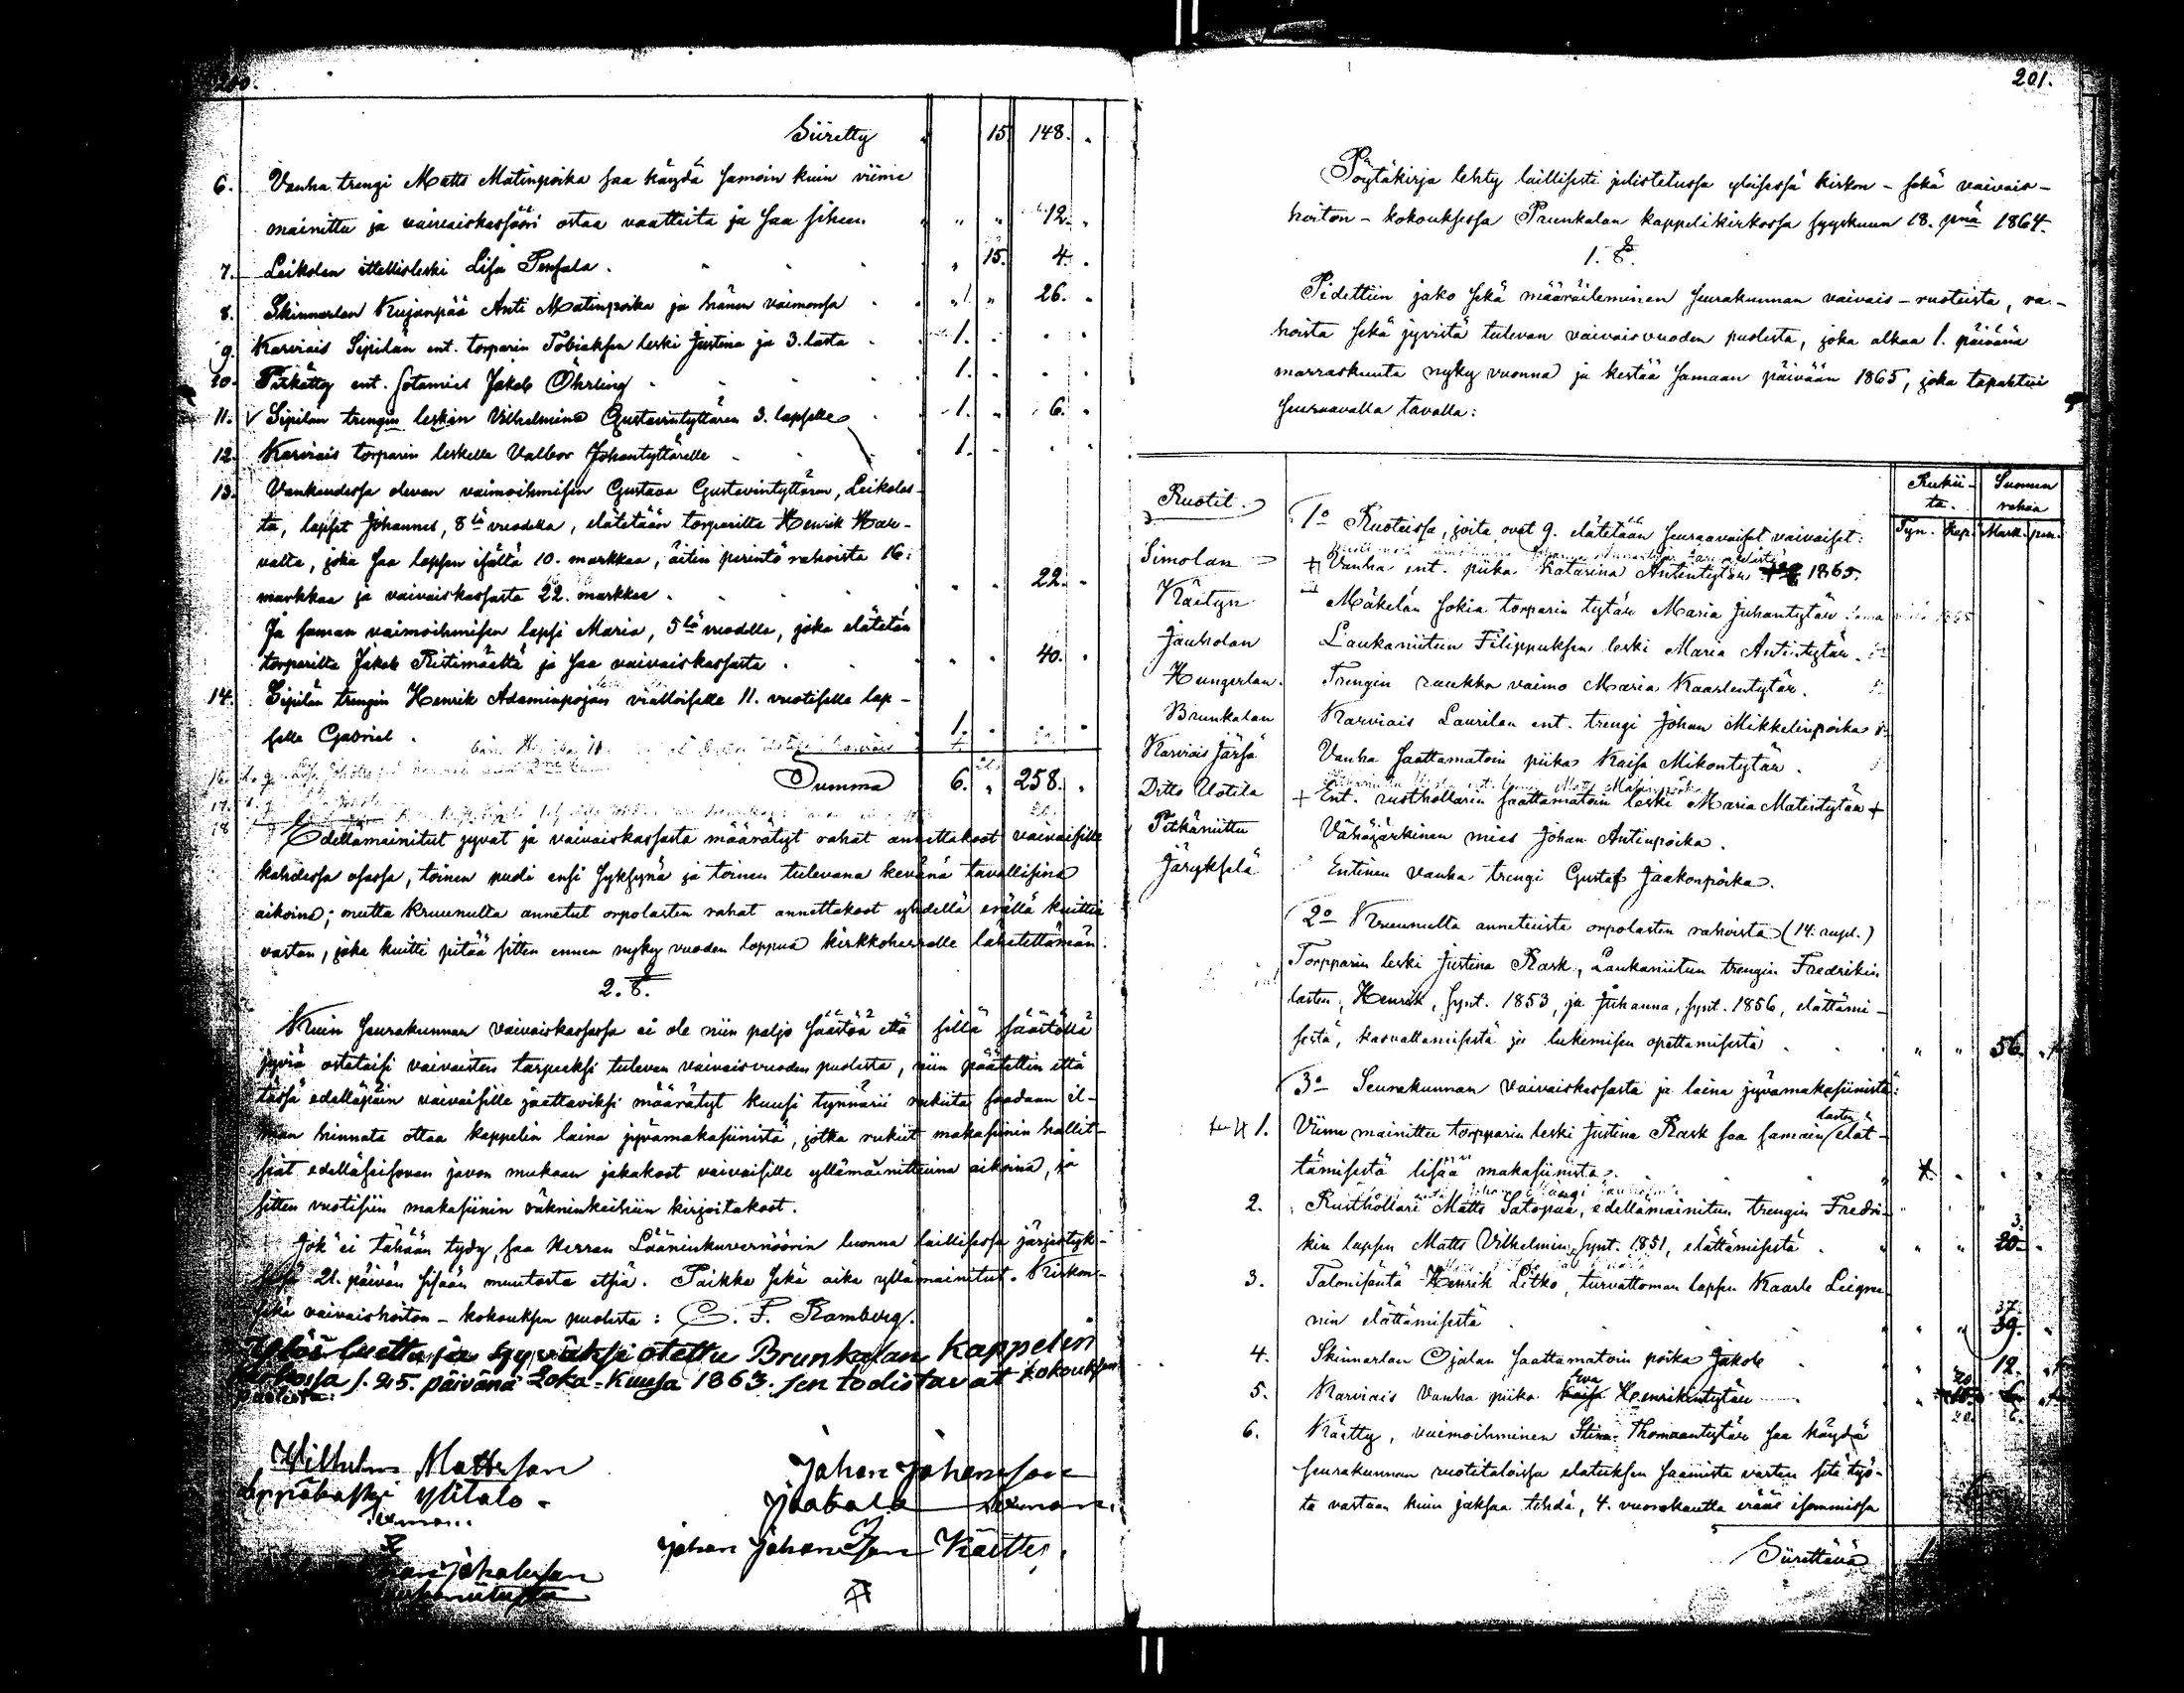 200.
Siiretty 15 148.
6. Vanha trengi Matts Matinpoika saa käydä samoin kuin viime
mainittu ja vaivaiskassööri ostaa vaatteita ja saa siihen 12.
7. Leikolan ittellisleski Lisa Penfala. 15. 4.
8. Skinnarlan Kujanpää Anti Matinpoika ja hänen vaimonsa 1. 26.
9. Karviais Sipilän ent. torparin Tobiaksen leski Justina ja 3. lasta 1.
10. Pitkätty ent. sotamies Jakob Öhrling 1.
11. Sipilän trengin leskin Vilhelmina Gustavintyttären 3. lapselle 1. 6.
12. Karviais torparin leskelle Valbor Johantyttärelle 1.
13. Vankeudessa olevan vaimoihmisen Gustava Gustavintyttären, Leikolas-
ta, lapset Johannes, 8lä vuodella, elätetään torparilta Henrik Har-
valta, joka saa lapsen isältä 10. markkaa, äitin perintö rahoista 16.
markkaa ja vaivaiskassasta 22. markkaa. 22.
Ja saman vaimoihmisen lapsi Maria, 5lä vuodella, joka elätetän
torparilta Jakob Ristimäeltä ja saa vaivaiskassasta 40.
14. Sipilän trengin Henrik Adaminpojan vialloiselle 11. vuotiselle lap-
selle Gabriel. 1.
Summa 6. 258.
Edellämainitut jyvat ja vaivaiskassasta määrätyt rahat annettakoot vaivaisille
kahdessa osassa, toinen puoli ensi syksynä ja toinen tulevana kevänä tavallisina
aikoina; mutta kruunulta annetut orpolasten rahat annettakoot yhdellä erällä kuittia
vastan, joka kuitti pitää sitten ennen nyky vuoden loppua kirkkoherralle lähetettämän.
2. §.
Kuin seurakunnan vaivaiskassassa ei ole niin paljo säästöä että sillä säästöllä
jyviä ostetaisi vaivaisten tarpeeksi tulevan vaivaisvuoden puolesta, niin päätettin että
tässä edelläpäin vaivaisille jaettaviksi määrätyt kuusi tynnärii rukiita saadaan il-
man hinnata ottaa kappelin laina jyvämakasiinistä, jotka rukiit makasiinin hallit-
siat edelläseisovan javon mukaan jakakoot vaivaisille yllämainittuina aikoina, ja
sitten vuotisiin makasiinin räkninkeihiin kirjoitakoot.
Jok' ei tähään tydy, saa Herran Lääninkuvernöörin luonna laillisessa järjestyk-
sessä 21. päivän sisään muutosta etsiä. Paikka sekä aika yllämainitut. Kirkon-
sekä vaivaishoiton-kokouksen puolesta: C. F. Ramberg.
Ylös luettu ja hyväksi otettu Brunkalan kappelin
kirkosa s. 25. päivänä Loka-Kuusa 1863. sen todistavat kokouksen
puolesta:
Vilhelm Mattsson Johan Johansson
Ylitalo Jaakola
Johan Johansson Käetty
201.
Pöytäkirja tehty laillisesti julistetussa yleisessä kirkon- sekä vaivais-
hoiton-kokouksessa Prunkalan kappelikirkossa syyskuun 18. pnä 1864.
1. §.
Pidettiin jako sekä määräileminen seurakunnan vaivais-ruoteista, ra-
hoista sekä jyvistä tulevan vaivaisvuoden puolesta, joka alkaa 1. päivänä
marraskuuta nyky vuonna ja kestää samaan päivään 1865, joka tapahtui
seuraavalla tavalla:
Ruotit. Rukii-ta. Suomen rahaa
Tyn. Kap. Mark. pen.
1o Ruoteissa, joita ovat 9. elätetään seuraavaiset vaivaiset:
Simolan + Vanha ent. piika Katarina Antintytär 1865.
Käetyn Mäkelän sokia torparin tytär Maria Juhantytär
Jauholan Laukaniitun Filippuksen leski Maria Antintytär.
Hungerlan. Trengin raukka vaimo Maria Kaarlentytär.
Brunkalan Karviais Laurilan ent. trengi Johan Mikkelinpoika
Karviais Järsä Vanha saattamatoin piika Kaisa Mikontytär.
Ditto Uotila + Ent. rusthollarin saattamatoin leski Maria Matintytär +
Pitkäniittu Vähäjärkinen mies Johan Antinpoika.
Järykselä Entinen vanha trengi Gustaf Jaakonpoika.
2o Kruunulta annetuista orpolasten rahoista (14. rupl.)
Torpparin leski Justina Rask, Laukaniitun trengin Fredrikin
lasten, Henrik, synt. 1853, ja Juhanna, synt. 1856, elättämi-
sestä, kasvattamisesta ja lukemisen opettamisesta 56.
3o Seurakunnan vaivaiskassasta ja laina jyvämakasiinista:
1. Viime mainittu torpparin leski Justina Rask saa samain lasten elät-
tämisestä lisää makasiinista.
2. Rusthollari Matts Satopää, edellämainitun trengin Fredri-
kin lapsen Matts Vilhelmin, synt. 1851, elättämisestä 3. 20.
3. Talonisäntä Henrik Litko, turvattoman lapsen Kaarle
nin elättämisestä 37. 39.
4. Skinnarlan Ojalan saattamatoin poika Jakob 12.
5. Karviais vanha piika Kaisa Eva Henrikintytär 20
6. Käetty, vaimoihminen Stina Thomaantytär saa käydä
seurakunnan ruotitaloissa elatuksen saamista varten sitä työ-
tä vastaan kuin jaksaa tehdä, 4. vuorokautta eräas isommissa
Siirettävä